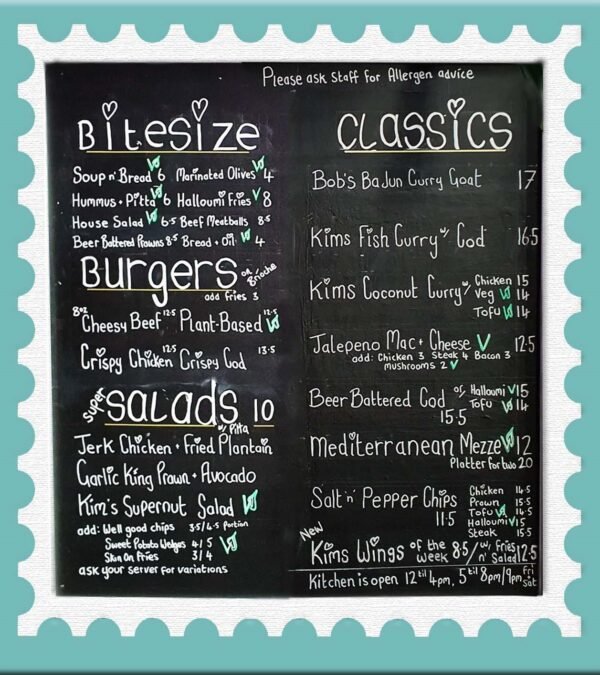 Please ask staff for Allergen advice
Bitesize
Soup n' Bread VG 6 Marinated Olives VG 4
Hummus + Pitta VG 6 Halloumi Fries V 8
House Salad VG 6.5 Beef Meatballs 8.5
Beer Battered Prawns 8.5 Bread + Oil VG 4
Burgers on Brioche
add fries 3
8oz Cheesy Beef 12.5 Plant-Based 12.5 VG
Crispy Chicken 12.5 Crispy Cod 13.5
Super Salads 10
w/ Pitta
Jerk Chicken + Fried Plantain
Garlic King Prawn + Avocado
Kim's Supernut Salad VG
add: Well good chips 3.5/4.5 portion
Sweet Potato Wedges 4/5 VG
Skin On Fries 3/4
ask your server for variations
Classics
Bob's Bajun Curry Goat 17
Kims Fish Curry w/ Cod 16.5
Kims Coconut Curry w/ Chicken 15
Veg VG 14
Tofu VG 14
Jalepeno Mac + Cheese V 12.5
add: Chicken 3 Steak 4 Bacon 3
mushrooms 2 V
Beer Battered Cod or/ Halloumi V 15
Tofu VG 14
15.5
Mediterranean Mezze VG 12
Platter for two 20
Salt 'n' Pepper Chips
11.5
Chicken 14.5
Prawn 15.5
Tofu VG 14.5
Halloumi V 15
Steak 15.5
New
Kims Wings of the week 8.5/ w/ Fries n' Salad 12.5
Kitchen is open 12 til 4pm, 5 til 8pm/9pm Fri Sat